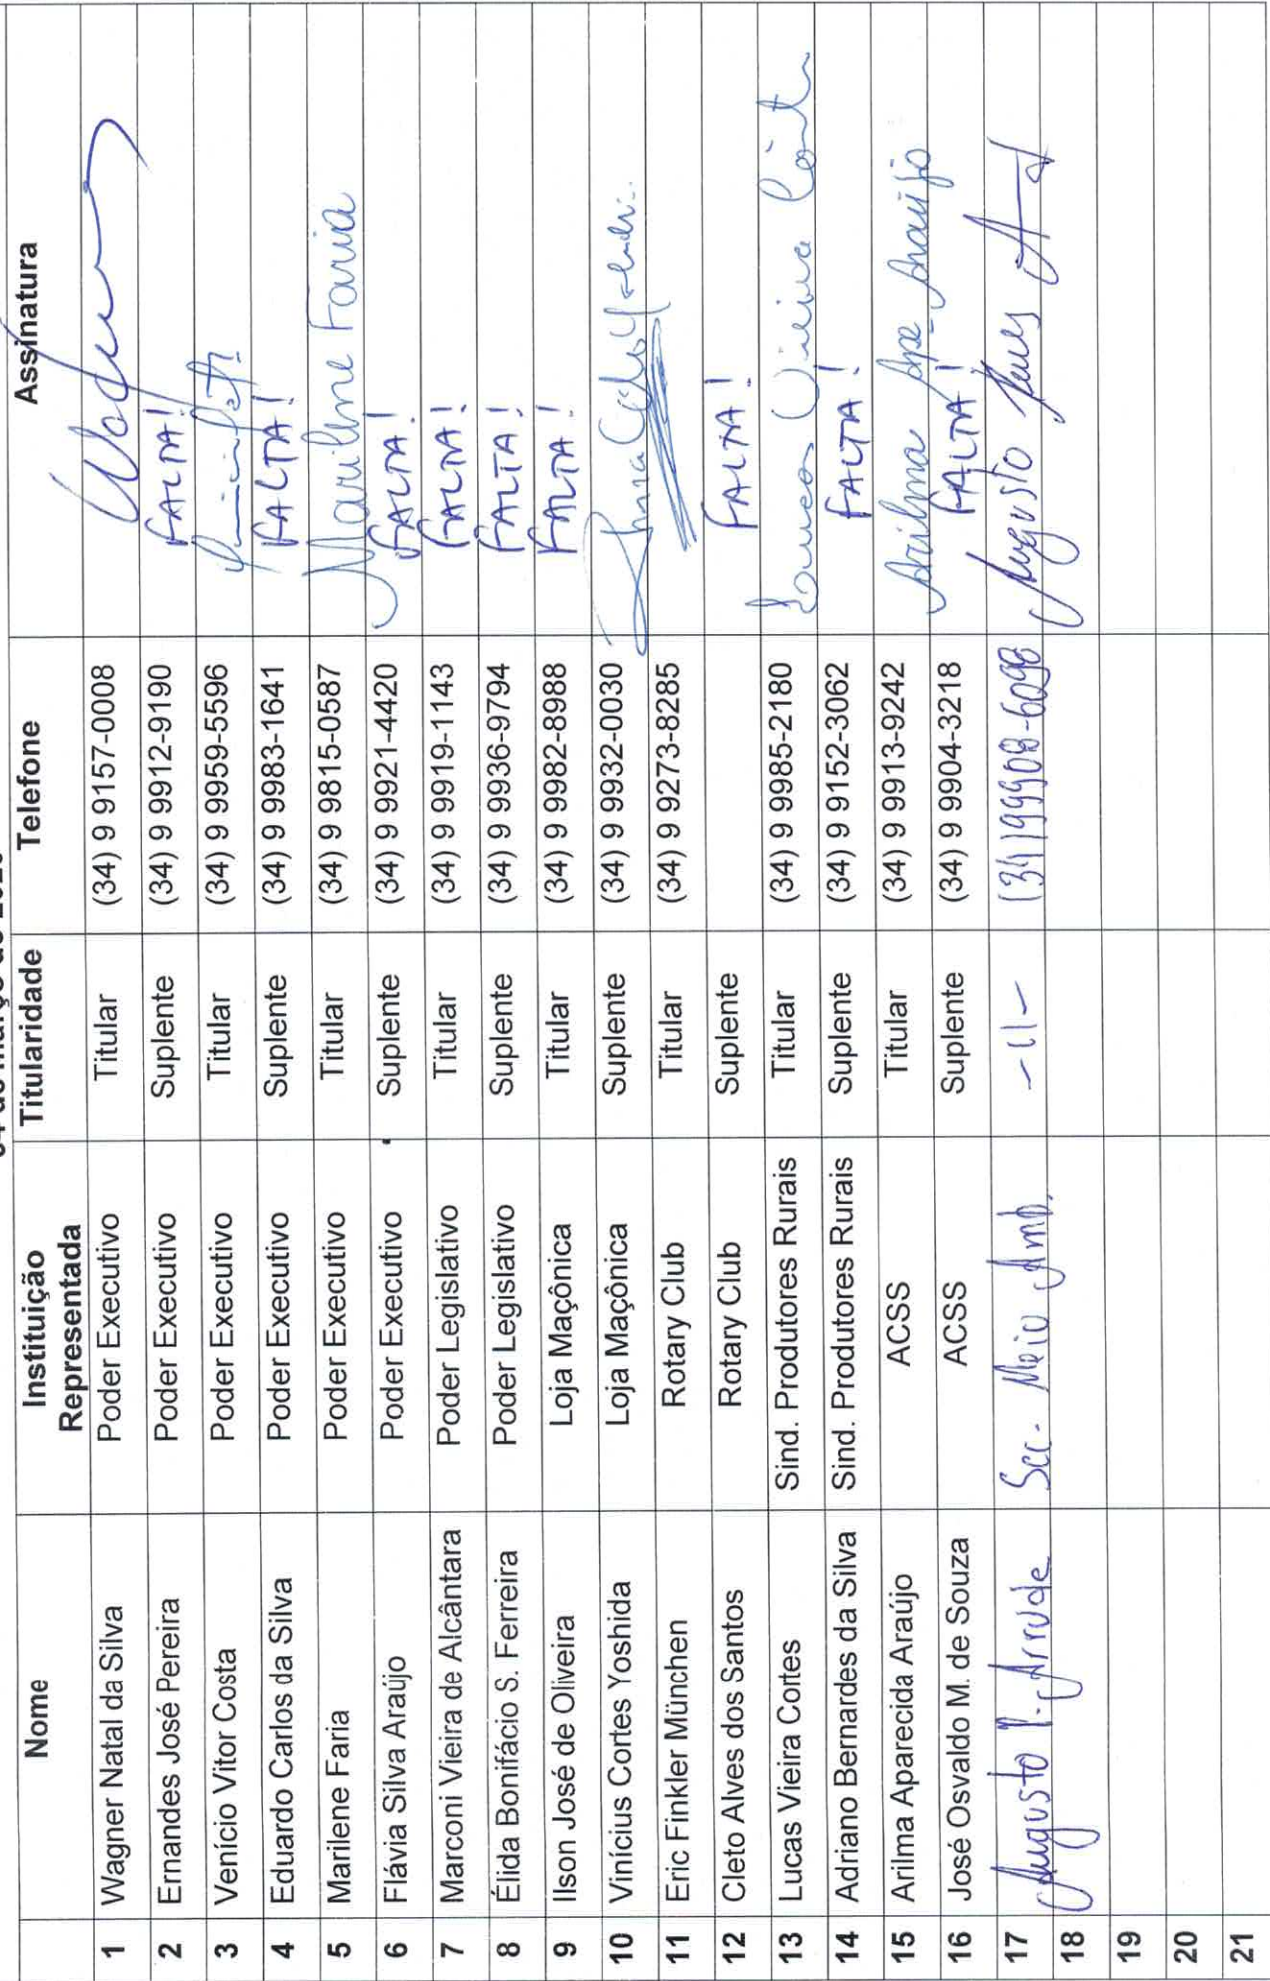 Nome Instituição Representada Titularidade Telefone Assinatura
1 Wagner Natal da Silva Poder Executivo Titular (34) 9 9157-0008
2 Ernandes José Pereira Poder Executivo Suplente (34) 9 9912-9190 FALTA!
3 Venício Vitor Costa Poder Executivo Titular (34) 9 9959-5596
4 Eduardo Carlos da Silva Poder Executivo Suplente (34) 9 9983-1641 FALTA!
5 Marilene Faria Poder Executivo Titular (34) 9 9815-0587 Marilene Faria
6 Flávia Silva Araújo Poder Executivo Suplente (34) 9 9921-4420 FALTA!
7 Marconi Vieira de Alcântara Poder Legislativo Titular (34) 9 9919-1143 FALTA!
8 Élida Bonifácio S. Ferreira Poder Legislativo Suplente (34) 9 9936-9794 FALTA!
9 Ilson José de Oliveira Loja Maçônica Titular (34) 9 9982-8988 FALTA!
10 Vinícius Cortes Yoshida Loja Maçônica Suplente (34) 9 9932-0030
11 Eric Finkler München Rotary Club Titular (34) 9 9273-8285
12 Cleto Alves dos Santos Rotary Club Suplente FALTA!
13 Lucas Vieira Cortes Sind. Produtores Rurais Titular (34) 9 9985-2180 Lucas Vieira
14 Adriano Bernardes da Silva Sind. Produtores Rurais Suplente (34) 9 9152-3062 FALTA!
15 Arilma Aparecida Araújo ACSS Titular (34) 9 9913-9242 Arilma Apª Araújo
16 José Osvaldo M. de Souza ACSS Suplente (34) 9 9904-3218 FALTA!
17 Augusto P. Arruda Sec. Meio Amb. -||- Augusto
18
19
20
21